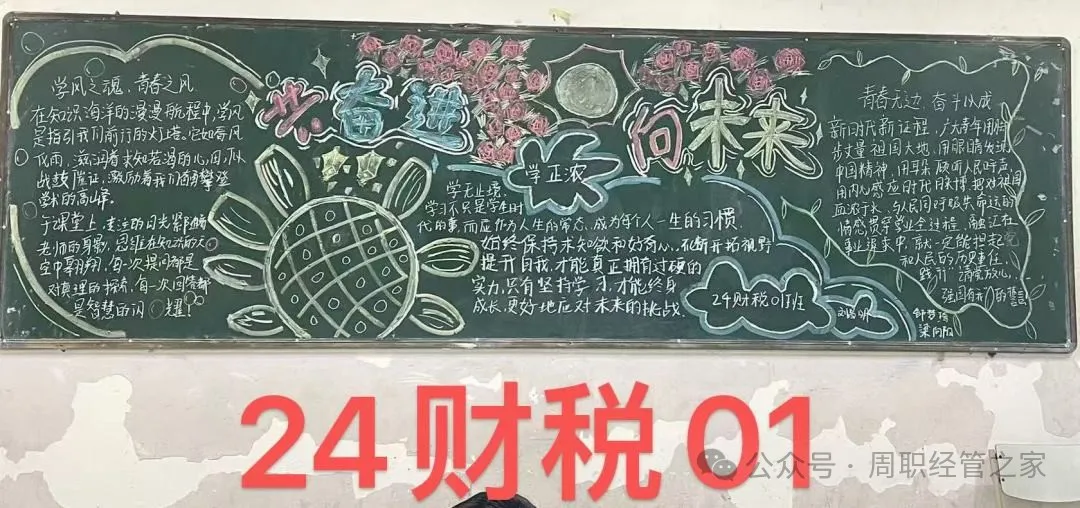 学风之魂，青春之风
在知识海洋的漫漫航程中，学风
是指引我们前行的灯塔。它如春风
化雨，滋润着求知若渴的心田，似
战鼓催征，激励着我们勇攀登
学术的高峰。
于课堂上，专注的目光紧随
老师的身影，思维在知识的天
空中翱翔，每一次提问都是
对真理的探寻，每一次回答都
是智慧的闪耀！
共奋进
向未来
学正浓
学无止境
学习不只是学生时
代的事，而应作为人生的常态，成为每个人一生的习惯，
始终保持求知欲和好奇心，不断开拓视野
提升自我，才能真正拥有过硬的
实力，只有坚持学习，才能终身
成长，更好地应对未来的挑战。
24财税01班
青春无边 奋斗以成
新时代新征程，广大青年用脚
步丈量祖国大地，用眼睛发现
中国精神，用耳朵倾听人民呼声，
用内心感应时代脉搏，把对祖国
血浓于水、与人民同呼吸共命运的
情感贯穿学业全过程、融汇在
事业追求中，就一定能担起
和人民的历史重任
践行"请党放心，
强国有我"的誓言
24财税01
公众号·周职经管之家